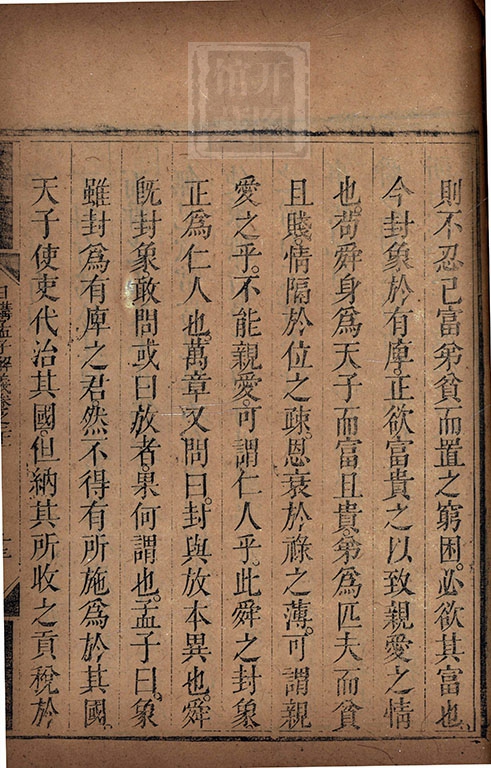 則不忍己富弟貧而置之窮困必欲其富也
今封象於有庳正欲富貴之以致親愛之情
也苟舜身爲天子而富且貴弟爲匹夫而貧
且賤情隔於位之疎恩衰於祿之薄可謂親
愛之乎不能親愛可謂仁人乎此舜之封象
正爲仁人也萬章又問曰封與放本異也舜
旣封象敢問或曰放者果何謂也孟子曰象
雖封爲有庳之君然不得有所施爲於其國
天子使吏代治其國但納其所收之貢稅於
日講孟子解義卷之